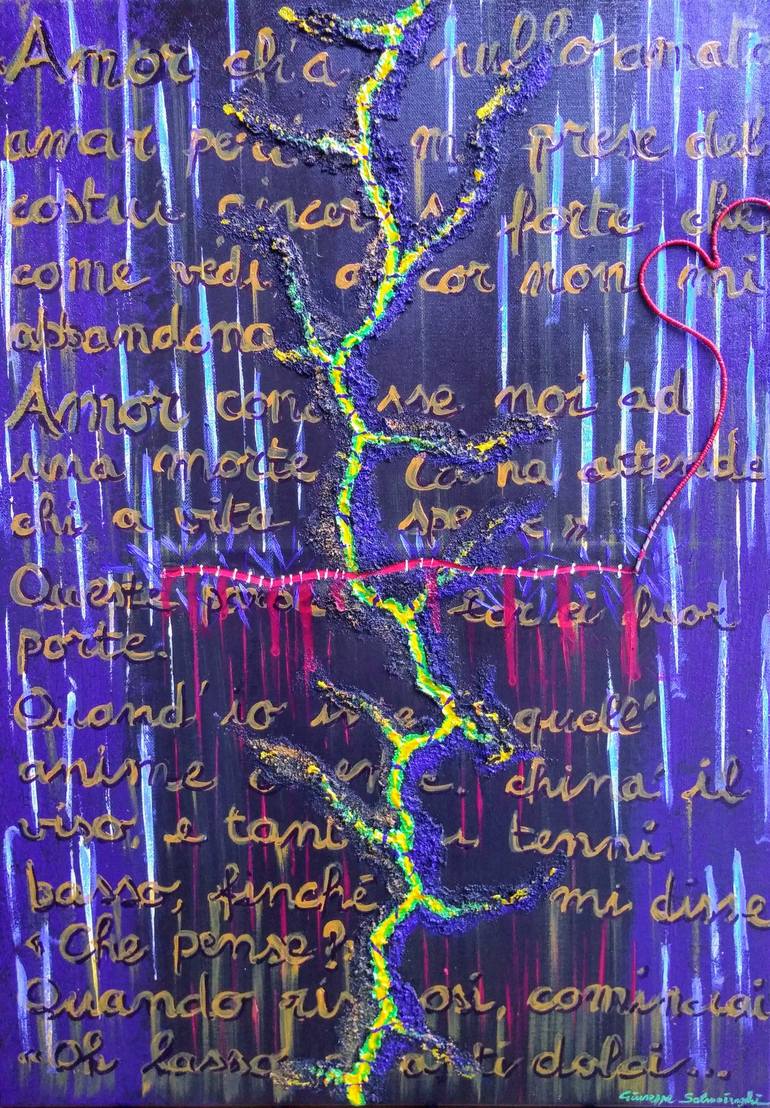 Amor ch'a nullo amato
amar m prese del
costui forte che,
come vedi cor non mi
abbandona
Amor con sse noi ad
una morte Caina attende
chi a vita spe e »
Queste parol lor ci fuor
porte.
Quand' io quell'
anime china' il
viso, e tant i tenni
basso, finché mi disse
«Che pense?
Quando ris osi, cominciai
«Oh lasso anti dolci...
Giuseppe